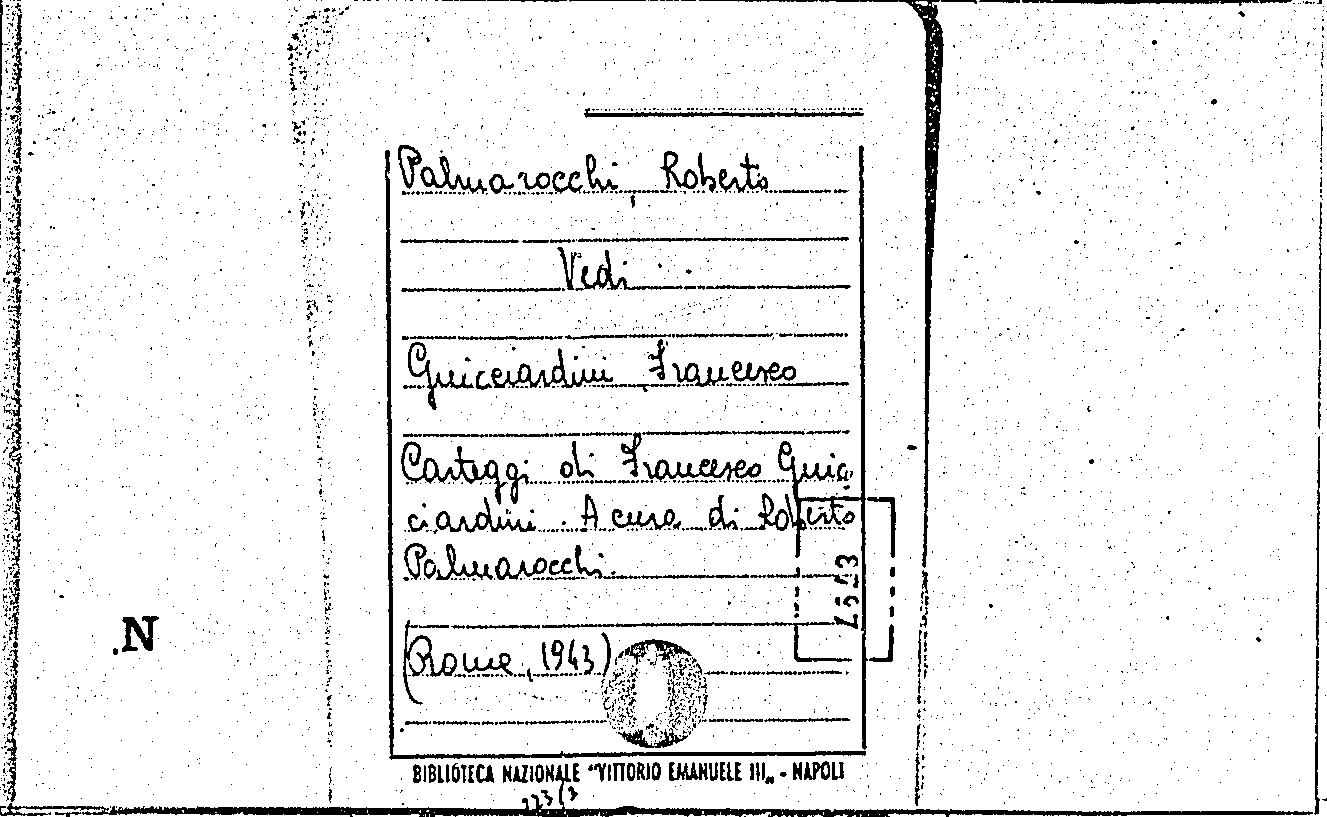 Palmarocchi, Roberto
Vedi
Guicciardini, Francesco
Carteggi di Francesco Guic
ciardini. A cura di Roberto
Palmarocchi.
(Roma, 1943)
.N
BIBLIOTECA NAZIONALE "VITTORIO EMANUELE III„ - NAPOLI